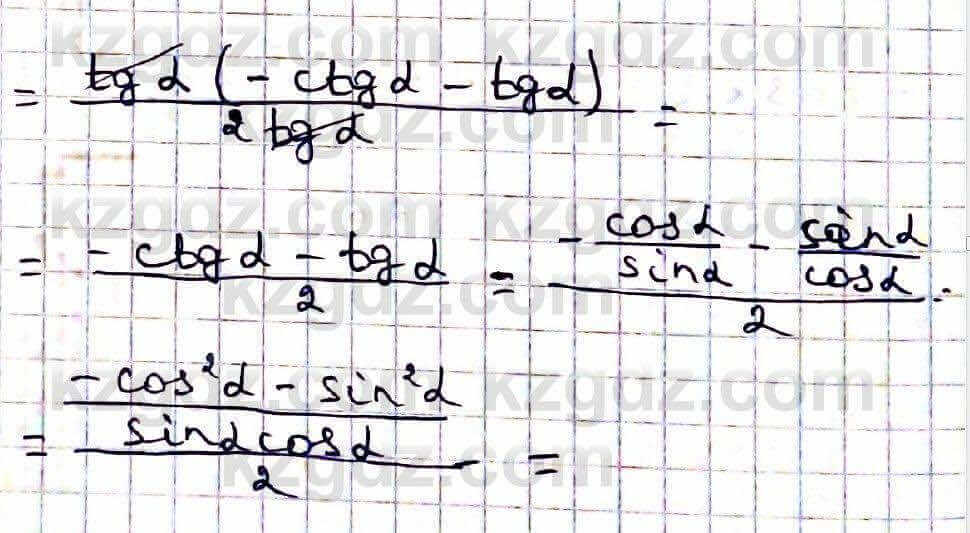 = tg α (- ctg α - tg α) / 2 tg α =
= - ctg α - tg α / 2 = - cos α / sin α - sin α / cos α / 2 .
= - cos²α - sin²α / sin α cos α / 2 =
kzgdz.com